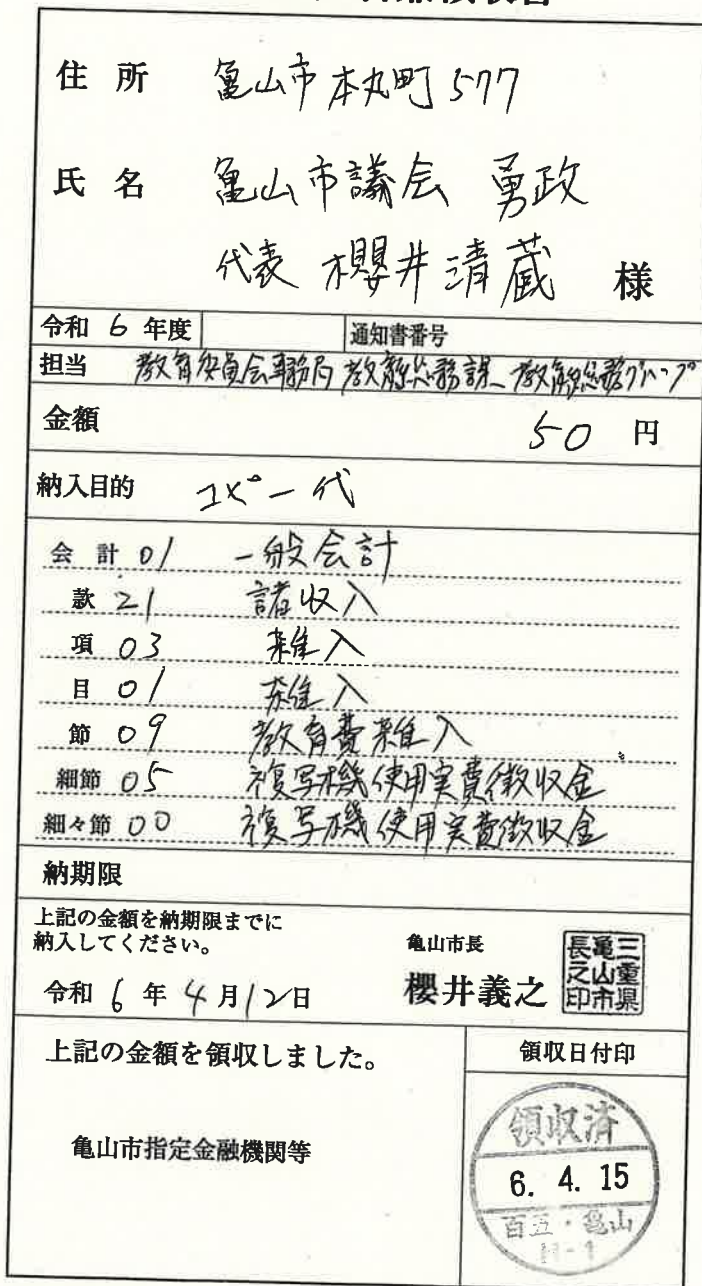 住所 亀山市本丸町577
氏名 亀山市議会 勇政
代表 櫻井清蔵 様
令和 6 年度 通知書番号
担当 教育委員会事務局 教育総務課 教育総務グループ
金額 50 円
納入目的 コピー代
会計 01 一般会計
款 21 諸収入
項 03 雑入
目 01 雑入
節 09 教育費雑入
細節 05 複写機使用実費徴収金
細々節 00 複写機使用実費徴収金
納期限
上記の金額を納期限までに
納入してください。
亀山市長
令和 6 年 4 月 12 日 櫻井義之
三重県亀山市長之印
上記の金額を領収しました。
領収日付印
亀山市指定金融機関等
領収済
6. 4. 15
百五・亀山